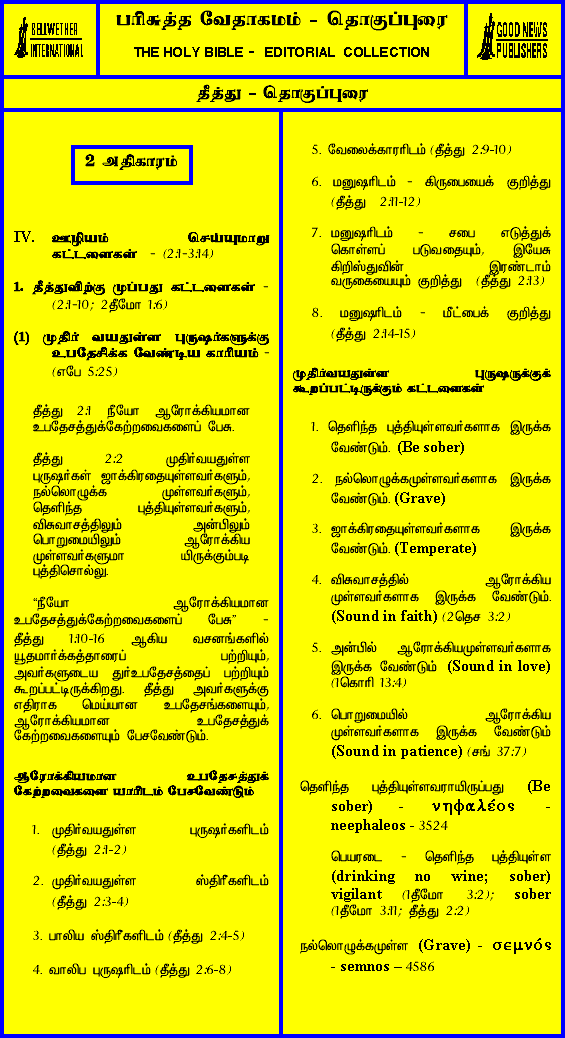 BELLWETHER
INTERNATIONAL
பரிசுத்த வேதாகமம் - தொகுப்புரை
THE HOLY BIBLE - EDITORIAL COLLECTION
GOOD NEWS
PUBLISHERS
தீத்து - தொகுப்புரை
2 அதிகாரம்
IV. ஊழியம் செய்யுமாறு
கட்டளைகள் - (2:1-3:14)
1. தீத்துவிற்கு முப்பது கட்டளைகள் -
(2:1-10; 2தீமோ 1:6)
(1) முதிர் வயதுள்ள புருஷர்களுக்கு
உபதேசிக்க வேண்டிய காரியம் -
(எபே 5:25)
தீத்து 2:1 நீயோ ஆரோக்கியமான
உபதேசத்துக்கேற்றவைகளைப் பேசு.
தீத்து 2:2 முதிர்வயதுள்ள
புருஷர்கள் ஜாக்கிரதையுள்ளவர்களும்,
நல்லொழுக்க முள்ளவர்களும்,
தெளிந்த புத்தியுள்ளவர்களும்,
விசுவாசத்திலும் அன்பிலும்
பொறுமையிலும் ஆரோக்கிய
முள்ளவர்களுமா யிருக்கும்படி
புத்திசொல்லு.
“நீயோ ஆரோக்கியமான
உபதேசத்துக்கேற்றவைகளைப் பேசு” -
தீத்து 1:10-16 ஆகிய வசனங்களில்
யூதமார்க்கத்தாரைப் பற்றியும்,
அவர்களுடைய துர்உபதேசத்தைப் பற்றியும்
கூறப்பட்டிருக்கிறது. தீத்து அவர்களுக்கு
எதிராக மெய்யான உபதேசங்களையும்,
ஆரோக்கியமான உபதேசத்துக்
கேற்றவைகளையும் பேசவேண்டும்.
ஆரோக்கியமான உபதேசத்துக்
கேற்றவைகளை யாரிடம் பேசவேண்டும்
1. முதிர்வயதுள்ள புருஷர்களிடம்
(தீத்து 2:1-2)
2. முதிர்வயதுள்ள ஸ்திரீகளிடம்
(தீத்து 2:3-4)
3. பாலிய ஸ்திரீகளிடம் (தீத்து 2:4-5)
4. வாலிப புருஷரிடம் (தீத்து 2:6-8)
5. வேலைக்காரரிடம் (தீத்து 2:9-10)
6. மனுஷரிடம் - கிருபையைக் குறித்து
(தீத்து 2:11-12)
7. மனுஷரிடம் - சபை எடுத்துக்
கொள்ளப் படுவதையும், இயேசு
கிறிஸ்துவின் இரண்டாம்
வருகையையும் குறித்து (தீத்து 2:13)
8. மனுஷரிடம் - மீட்பைக் குறித்து
(தீத்து 2:14-15)
முதிர்வயதுள்ள புருஷருக்குக்
கூறப்பட்டிருக்கும் கட்டளைகள்
1. தெளிந்த புத்தியுள்ளவர்களாக இருக்க
வேண்டும். (Be sober)
2. நல்லொழுக்கமுள்ளவர்களாக இருக்க
வேண்டும். (Grave)
3. ஜாக்கிரதையுள்ளவர்களாக இருக்க
வேண்டும். (Temperate)
4. விசுவாசத்தில் ஆரோக்கிய
முள்ளவர்களாக இருக்க வேண்டும்.
(Sound in faith) (2தெச 3:2)
5. அன்பில் ஆரோக்கியமுள்ளவர்களாக
இருக்க வேண்டும் (Sound in love)
(1கொரி 13:4)
6. பொறுமையில் ஆரோக்கிய
முள்ளவர்களாக இருக்க வேண்டும்
(Sound in patience) (சங் 37:7)
தெளிந்த புத்தியுள்ளவராயிருப்பது (Be
sober) - νηφαλέος -
neephaleos - 3524
பெயரடை - தெளிந்த புத்தியுள்ள
(drinking no wine; sober)
vigilant (1தீமோ 3:2); sober
(1தீமோ 3:11; தீத்து 2:2)
நல்லொழுக்கமுள்ள (Grave) - σεμνός
- semnos – 4586